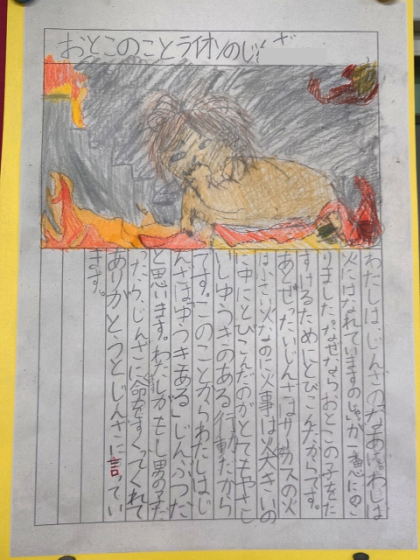 おとこのことライオンのじんざ
わたしは、じんざのなあぜわじは
火にはなれていますの」が一番心にのこ
りました。なぜなら、おとこの子をた
すけるためにとびこんだからです。
あぜったいじんざはサーカスの火
小さい火なのに火事は火大きいの
中にとびこんだのがとてもやさし
しゆうきのある行動だから
です。このことからわたしはじ
んざはゆうきある」じんぶつだ
と思います。わたしがもし男の子だ
ったら、じんざに命をすくってくれて
ありがとうとじんざに言ってい
ます。